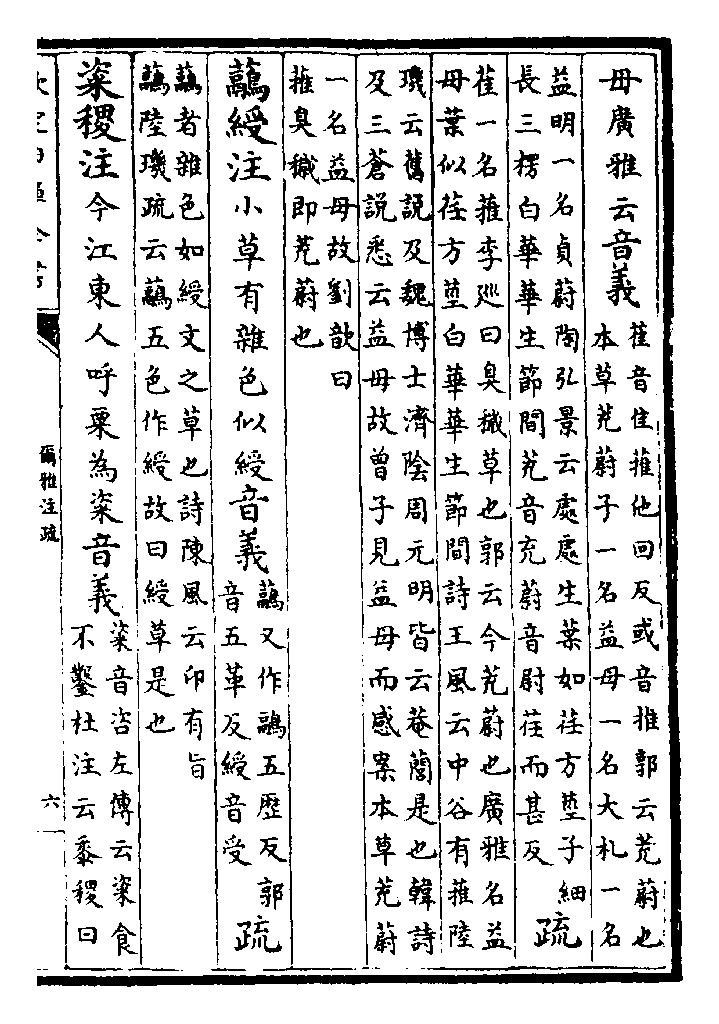 母廣雅云音義
萑音隹蓷他回反或音推郭云茺蔚也
本草茺蔚子一名益母一名大札一名
益明一名貞蔚陶弘景云處處生葉如荏方莖子細
長三楞白華華生節間茺音充蔚音尉荏而甚反
疏
萑一名蓷李廵曰臭穢草也郭云今茺蔚也廣雅名益
母葉似荏方莖白華華生節間詩王風云中谷有蓷陸
璣云舊説及魏博士濟隂周元明皆云菴䕡是也韓詩
及三蒼説悉云益母故曾子見益母而感案本草茺蔚
一名益母故劉歆曰
蓷臭穢即茺蔚也
虉綬注小草有雜色似綬音義
虉又作鷊五歴反郭
音五革反綬音受
疏
虉者雜色如綬文之草也詩陳風云卭有旨
虉陸璣疏云虉五色作綬故曰綬草是也
粢稷注今江東人呼粟為粢音義
粢音咨左傳云粢食
不鑿杜注云黍稷曰
爾雅注疏
六